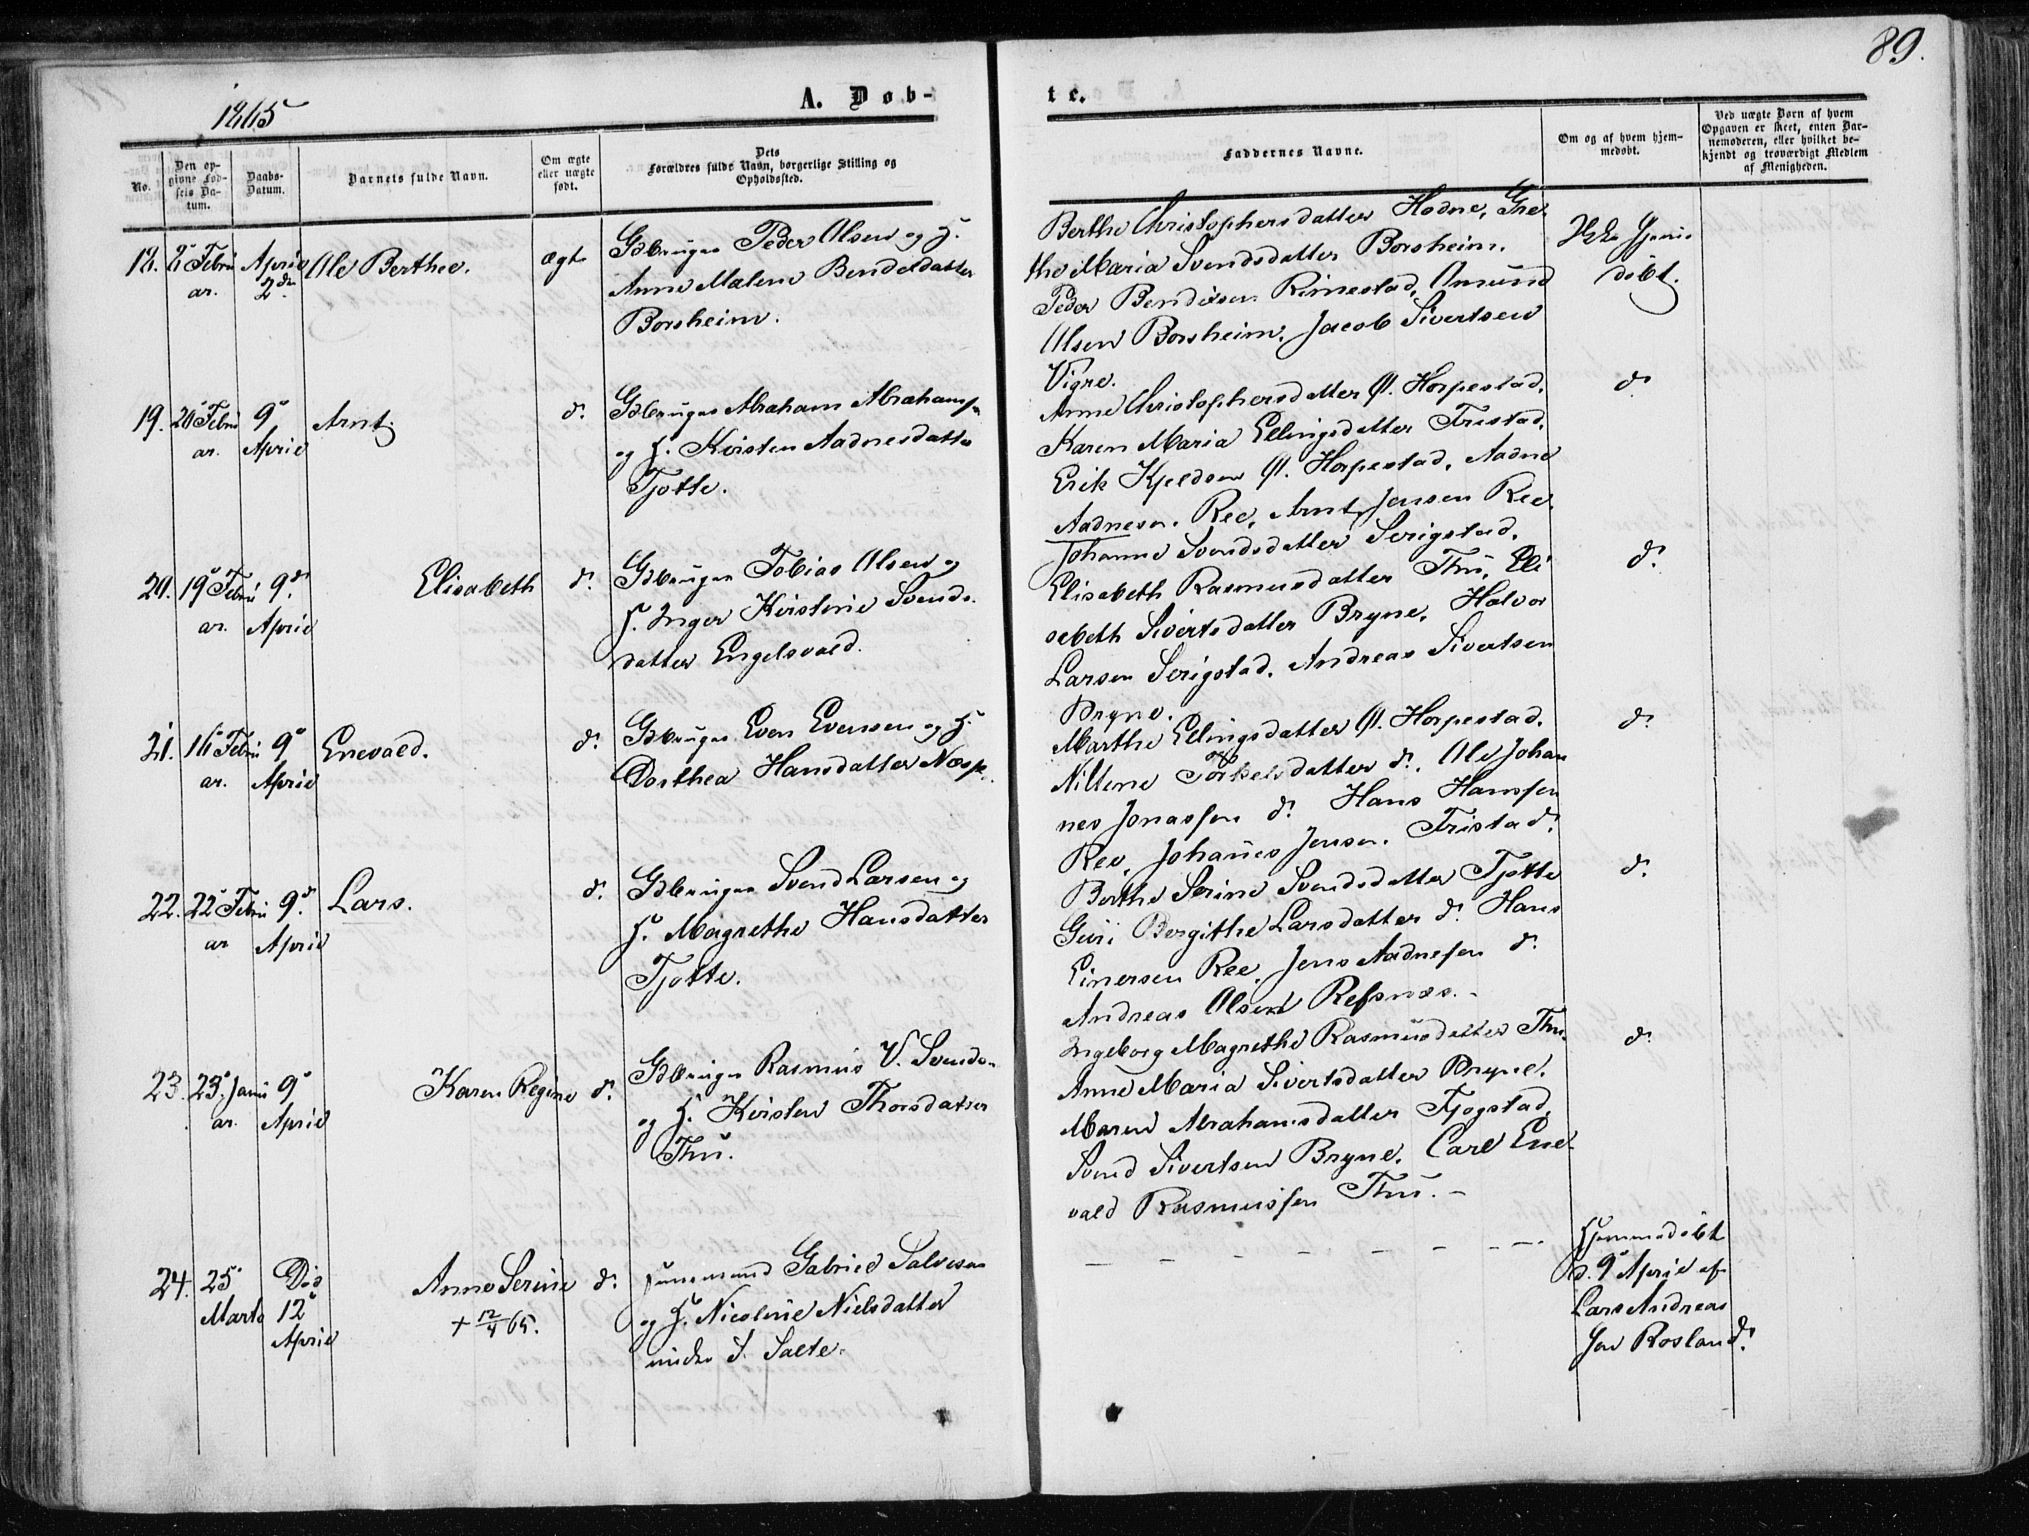 89.
1865
A. Døb-
te.
No.
Den op-
givne Fød-
sels Da-
tum.
Daabs-
Datum.
Barnets fulde Navn.
Om ægte
eller uægte
født.
Dets
Forældres fulde Navn, borgerlige Stilling og
Opholdssted.
Faddernes Navne.
Om og af hvem hjem-
medøbt.
Ved uægte Børn af hvem
Opgaven er skeet, enten Bar-
nemoderen, eller hvilket be-
kjendt og troværdigt Medlem
af Menigheden.
18. 2 Febru
ar.
April
2den
Ole Berthee.
ægte
Gdbruger Peder Olsen og H.
Anne Malene Bendixdatter
Borsheim.
Berthe Christophersdatter Hodne, Gre
the Maria Svendsdatter Borsheim.
Peder Bendixen Rimestad, Amund
Olsen Borsheim. Jacob Sivertsen
Vigre.
Ikke Hjem
døbt.
19. 20 Febru
ar.
9
April
Arnt.
do.
Gdbruger Abraham Abrahams.
og H. Kirsten Aadnesdatter
Tjøtte.
Anne Christophersdatter N. Horpestad.
Karen Maria Ellingsdatter Fristad.
Erik Kjeldsen N. Horpestad. Aadne
Aadnesen. Ree, Arnt Jensen Ree.
do.
20. 19 Febru
ar.
9.
April
Elisabeth
do.
Gdbruger Tobias Olsen og
H. Inger Kirstine Svends.
datter Engelsvold.
Johanne Svendsdatter Serigstad.
Elisabeth Rasmusdatter Thu, Eli
sebeth Sivertsdatter Bryne. Halvor
Larsen Serigstad. Andreas Sivertsen
Bryne.
do.
21. 16 Febru
ar.
9
April
Enevald.
do.
Gdbruger Even Evensen og H.
Dorthea Hansdatter Næsse.
Marthe Ellingsdatter N. Horpestad.
Niltene Torkelsdatter do. Ole Johan
nes Jonassen do. Hans Hanssen
Ree, Johannes Jensen. Fristad.
do.
22. 22 Febru
ar
9.
April
Lars.
do.
Gdbruger Svend Larsen og
H. Magrethe Hansdatter
Tjøtte.
Berthe Serine Svendsdatter Tjøtte
Guri Bergithe Larsdatter do. Hans
Einersen Ree, Jens Aadnesen do.
Andreas Olsen Refsnæs. -
do.
23. 23. Janu
ar.
9
April
Karen Regine
do.
Gdbruger Rasmus V. Svends.
og H. Kirsten Thorsdatter
Thu.
Ingeborg Magrethe Rasmusdatter Thu.
Anne Maria Sivertsdatter Bryne.
Maren Abrahamsdatter Fjogstad,
Svend Sivertsen Bryne. Carl Ene-
vald Rasmussen Thu. -
do.
24. 25
Marts
Død
12
April
Anne Serine
+ 12/4 65.
do.
Huusmand Gabriel Salvesen
og H. Nicoline Nielsdatter
under S. Salte.
- - - - - - - -
Hjemmedøbt
d. 9 April af
Lars Andreas
sen Rosland.